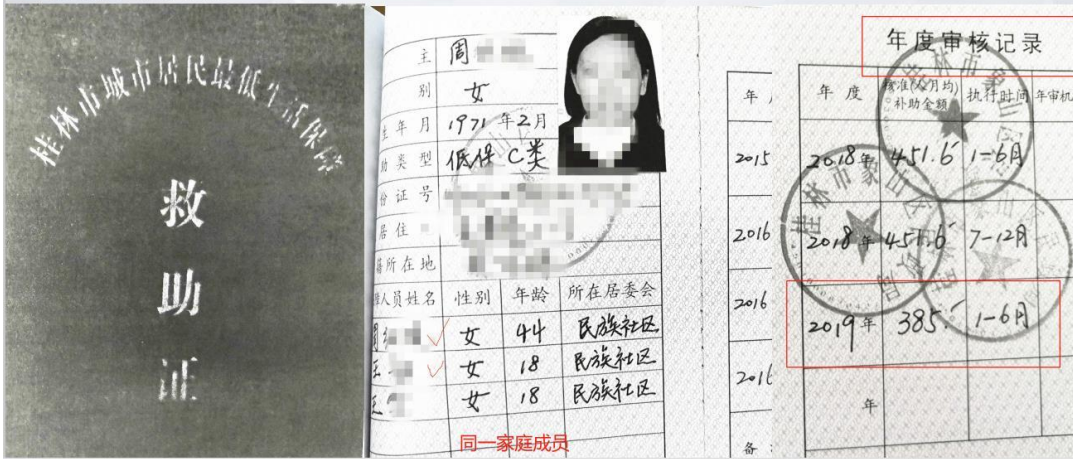 桂林市城市居民最低生活保障
救
助
证
主 周
别 女
生年月 1971年2月
助类型 低保C类
份证号
居住
籍所在地
人员姓名 性别 年龄 所在居委会
周 女 44 民族社区
王 女 18 民族社区
王 女 18 民族社区
同一家庭成员
年
2015
2016
2016
2016
备
年度审核记录
年度 核准(人月均)补助金额 执行时间 年审机
2018年 451.6 1-6月
2018年 451.6 7-12月
2019年 385. 1-6月
年
桂林市象山区民政局